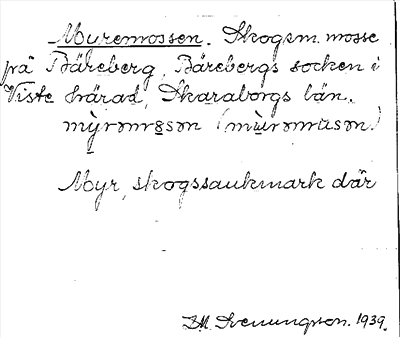 Myremossen. Skogsm. mosse
på Bäreberg, Bärebergs socken i
Viste härad, Skaraborgs län.
Myr, skogssankmark där
Svenungson. 1939.